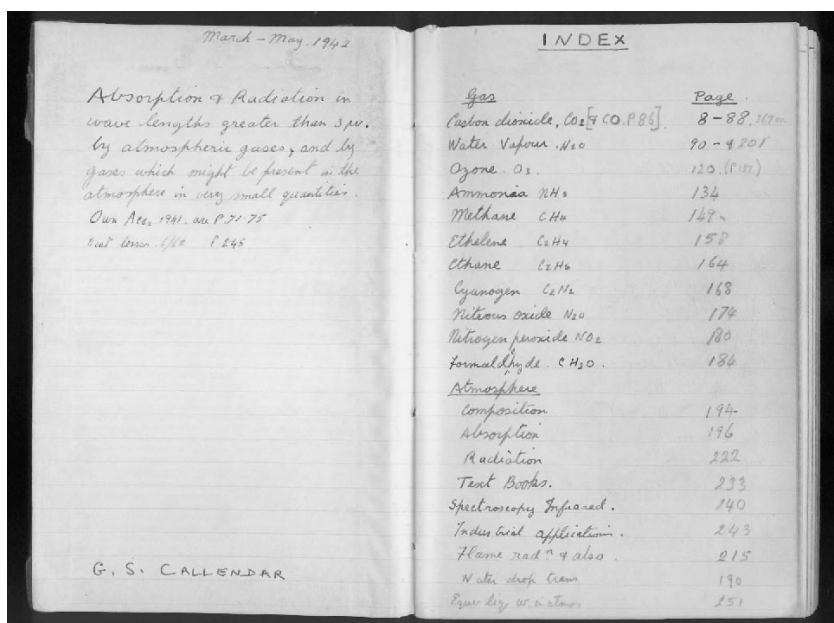 March - May. 1942
Absorption & Radiation in
wave lengths greater than 3 μ.
by atmospheric gases, and by
gases which might be present in the
atmosphere in very small quantities.
Own Acc. 1941. are P. 71-75
Heat losses P 245
G. S. CALLENDAR
INDEX
Gas Page.
Carbon dioxide, CO2 [& CO. P 86]. 8-88,
Water Vapour. H2O 90-
Ozone. O3. 120.
Ammonia NH3 134
Methane CH4 149
Ethelene C2H4 158
Ethane C2H6 164
Cyanogen C2N2 168
Nitrous oxide N2O 174
Nitrogen peroxide NO2 180
Formaldhyde. CH2O. 184
Atmosphere
Composition 194
Absorption 196
Radiation 222
Text Books. 233
Spectroscopy Infrared. 240
Industrial application. 243
Flame radn & also. 215
Water drop trans 190
251